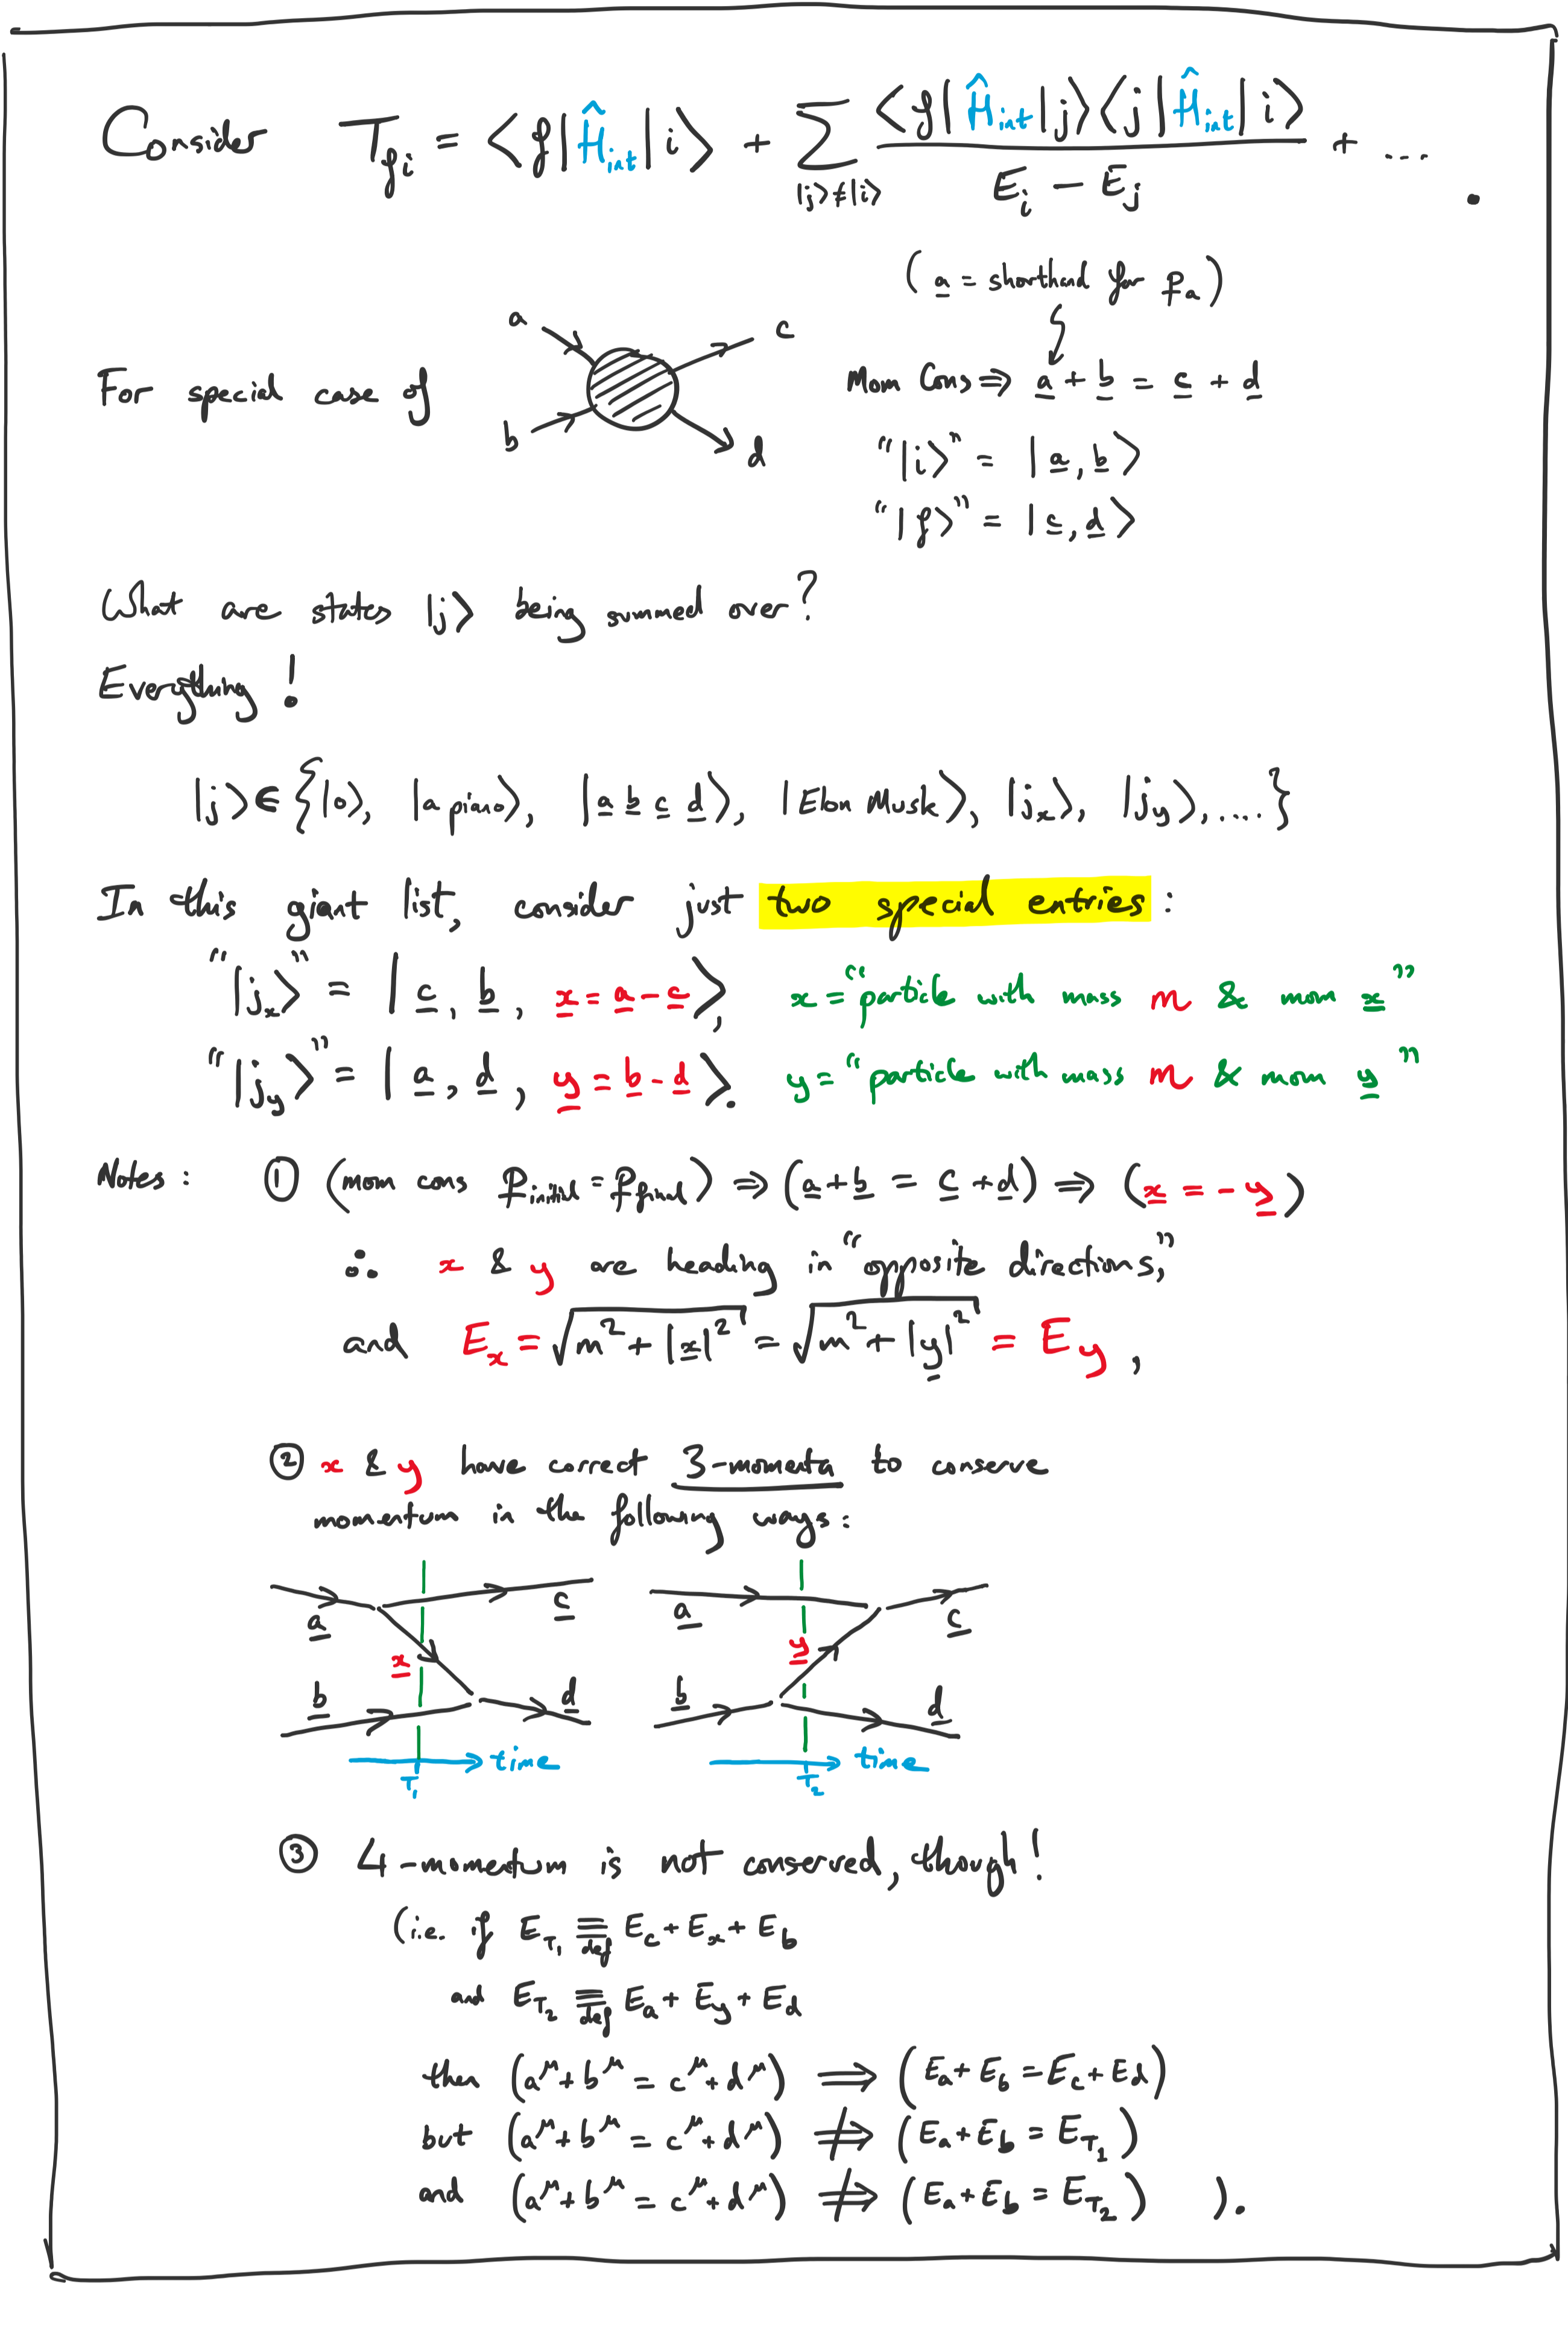 Consider T_fi = <f|Ĥ_int|i> + Σ_{|j>≠|i>} <f|Ĥ_int|j><j|Ĥ_int|i> / (E_i − E_j) + .... .
(a = shorthand for p_a)
For special case of a b c d Mom Cons ⇒ a + b = c + d
"|i>" = |a, b>
"|f>" = |c, d>
What are states |j> being summed over?
Everything!
|j> ∈ {|0>, |a piano>, |a b c d>, |Elon Musk>, |j_x>, |j_y>, .... }
In this giant list, consider just two special entries:
"|j_x>" = |c, b, x = a − c>, x = "particle with mass m & mom x"
"|j_y>" = |a, d, y = b − d>. y = "particle with mass m & mom y"
Notes: ① (mom cons p_initial = p_final) ⇒ (a + b = c + d) ⇒ (x = −y)
∴ x & y are heading in "opposite directions,"
and E_x = √(m² + |x|²) = √(m² + |y|²) = E_y ,
② x & y have correct 3-momenta to conserve
momentum in the following ways:
a c a c
x y
b d b d
T₁ time T₂ time
③ 4-momentum is not conserved, though!
(i.e. if E_T₁ ≡_def E_c + E_x + E_b
and E_T₂ ≡_def E_a + E_y + E_d
then (a^μ + b^μ = c^μ + d^μ) ⟹ (E_a + E_b = E_c + E_d)
but (a^μ + b^μ = c^μ + d^μ) ⇏ (E_a + E_b = E_T₁)
and (a^μ + b^μ = c^μ + d^μ) ⇏ (E_a + E_b = E_T₂) ).